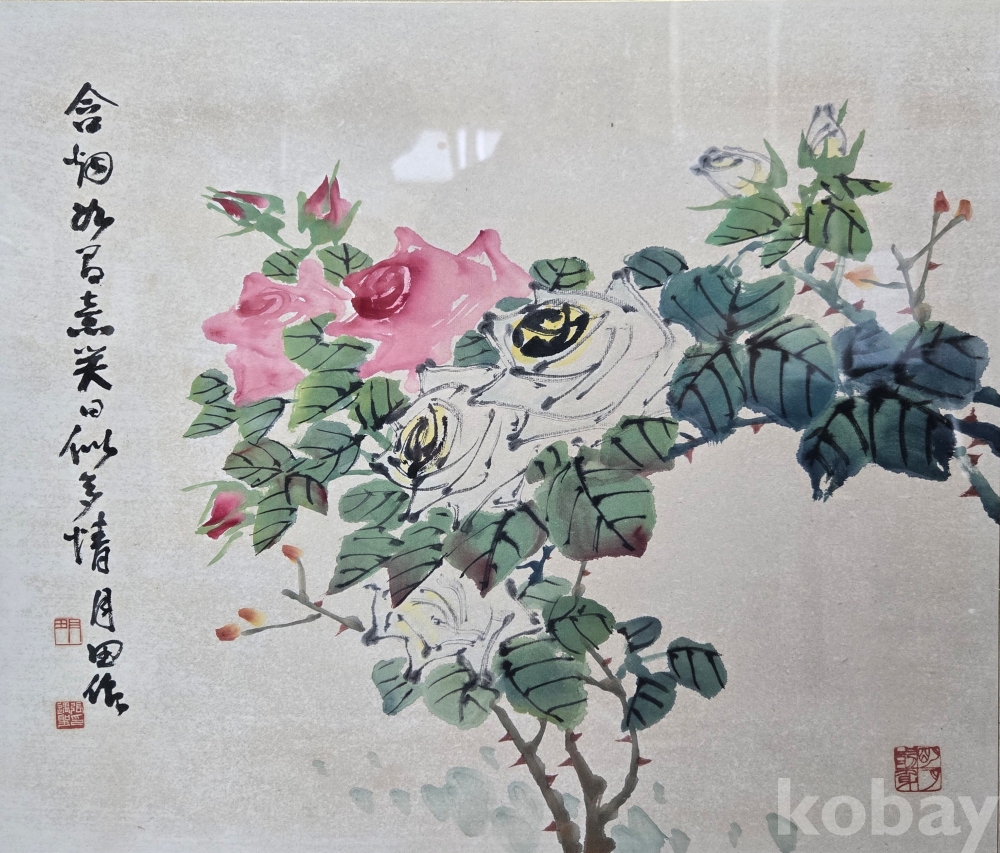 含烟如有意笑日似多情月田作
月田
kobay